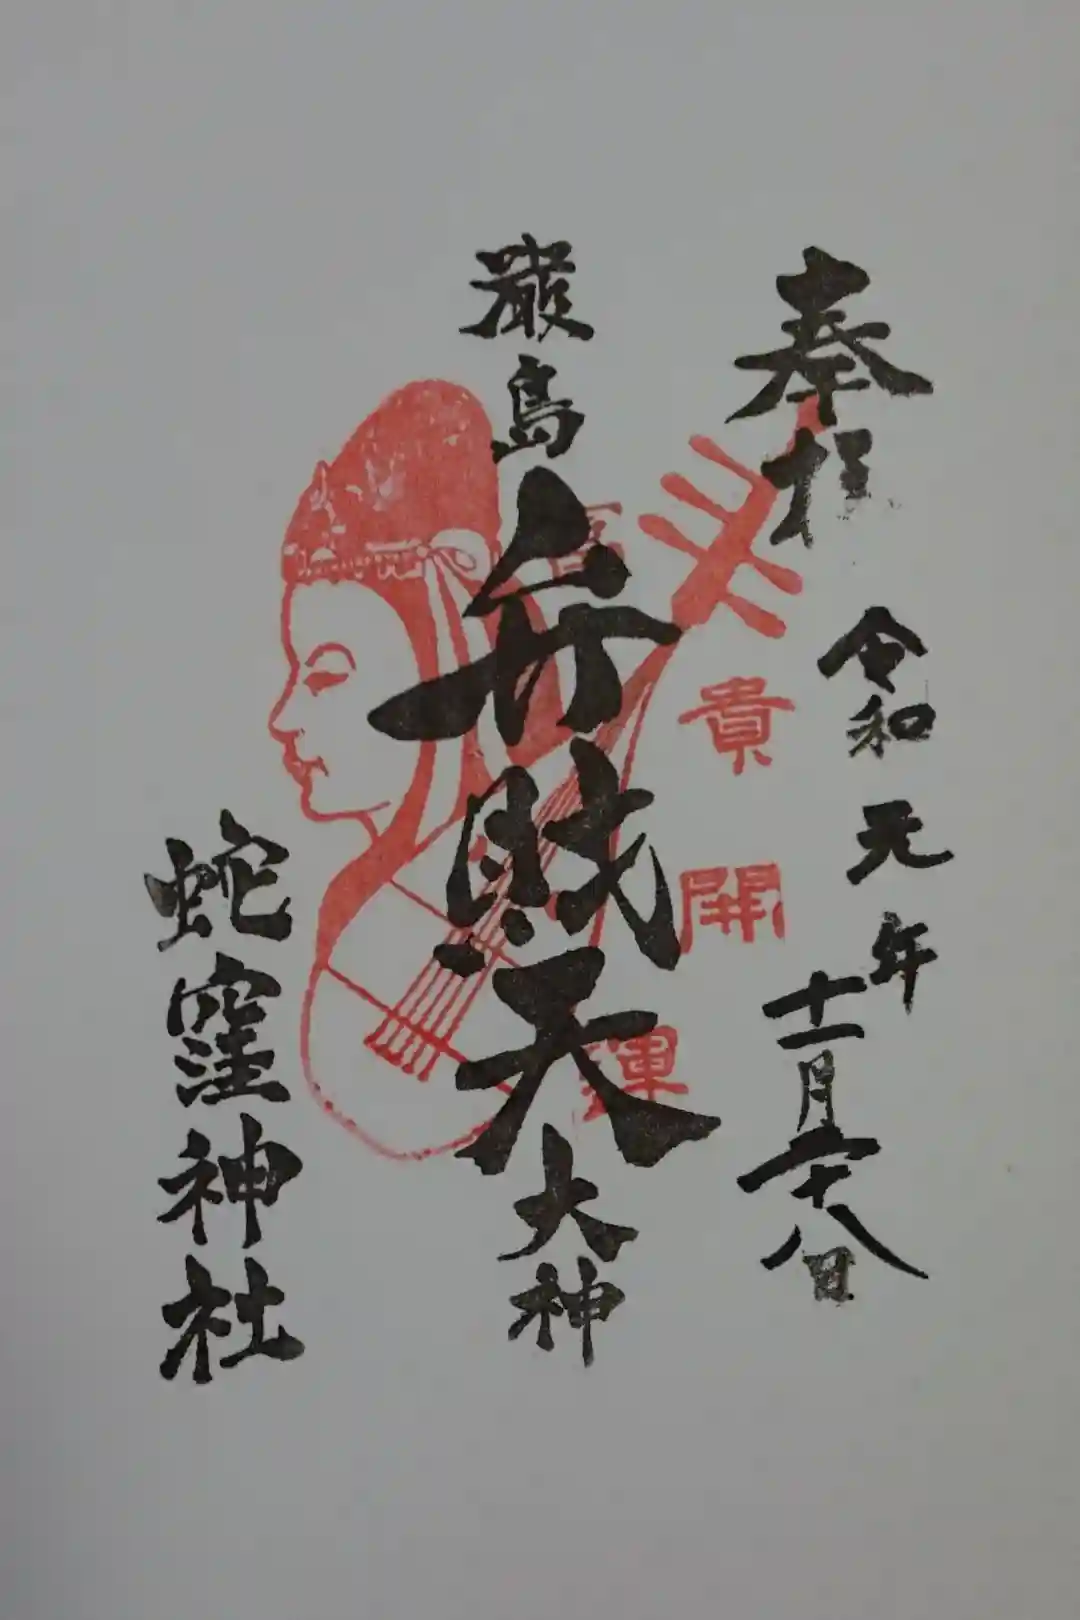 奉拝
令和元年
十一月二十八日
厳島
弁財天
大神
高貴開運
蛇窪神社